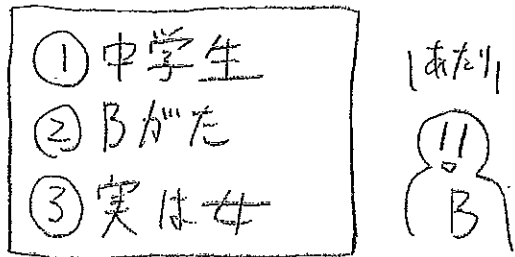 ①中学生
②Bがた
③実は女
あたり
B